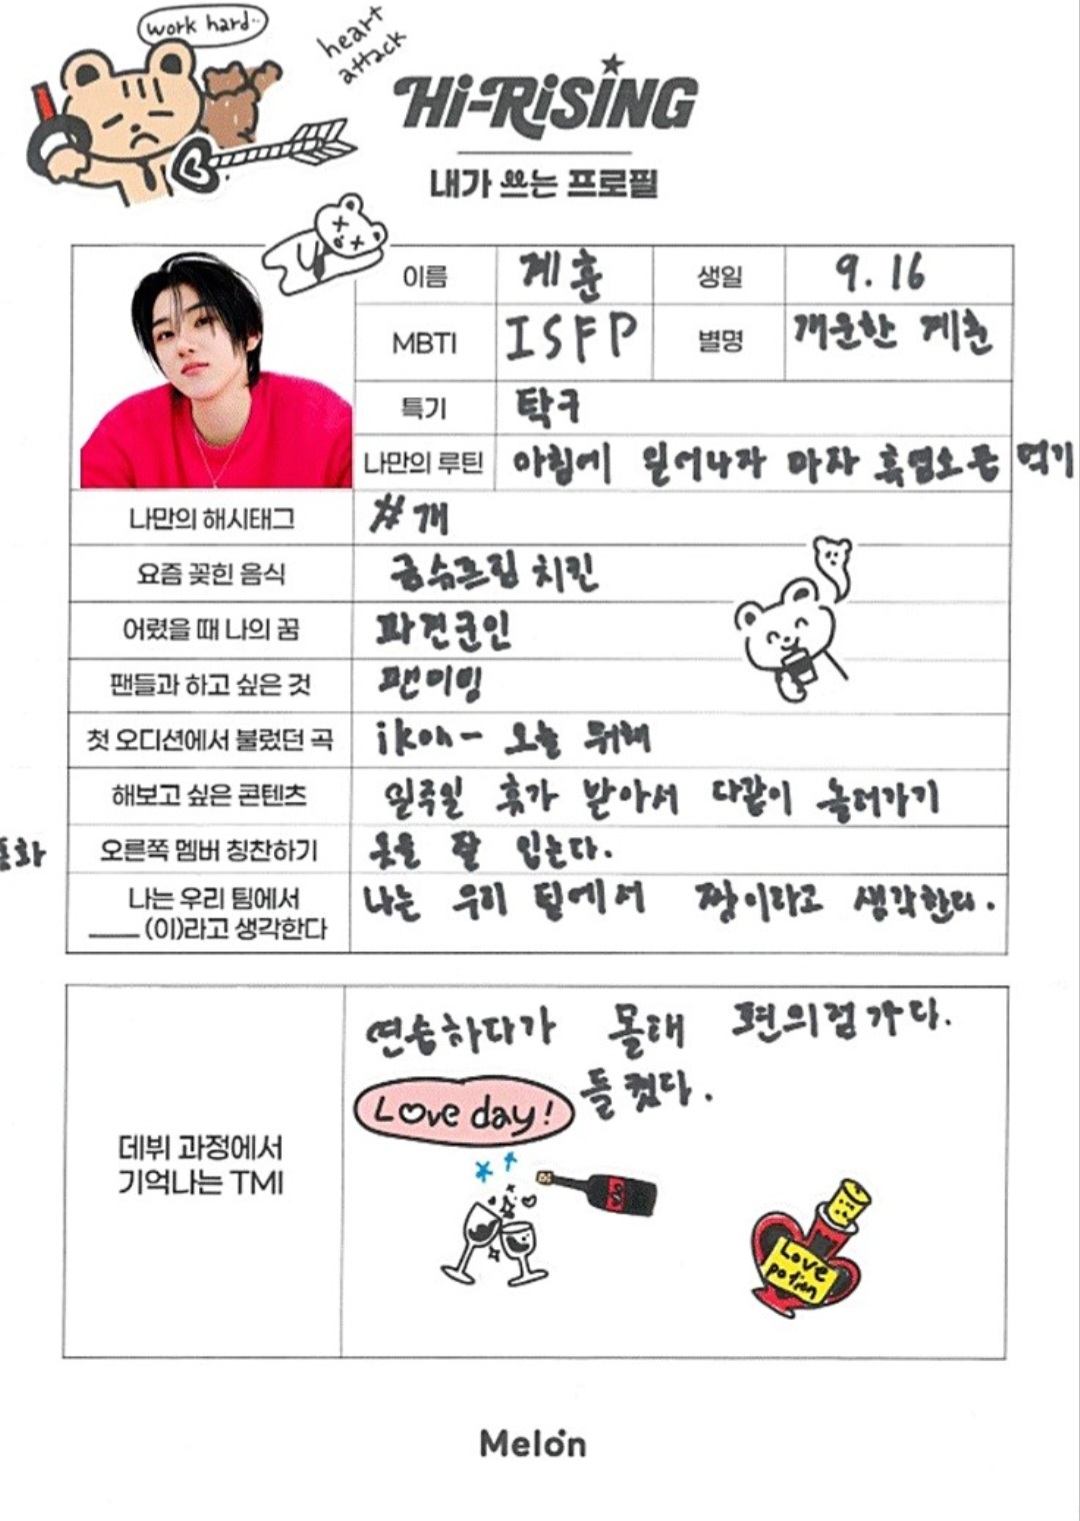 work hard..
heart
attack
Hi-RiSING
내가 쓰는 프로필
이름 계훈 생일 9.16
MBTI ISFP 별명 개운한 계훈
특기 탁구
나만의 루틴 아침에 일어나자 마자 흑염소즙 먹기
나만의 해시태그 #개
요즘 꽂힌 음식 치킨
어렸을 때 나의 꿈 파견군인
팬들과 하고 싶은 것 팬미팅
첫 오디션에서 불렀던 곡 ikon - 오늘 뭐해
해보고 싶은 콘텐츠 일주일 휴가 받아서 다같이 놀러가기
오른쪽 멤버 칭찬하기 옷을 잘 입는다.
나는 우리 팀에서 나는 우리 팀에서 짱이라고 생각한다.
____ (이)라고 생각한다
데뷔 과정에서
기억나는 TMI
연습하다가 몰래 편의점가다.
들켰다.
Love day!
Love
potion
Melon